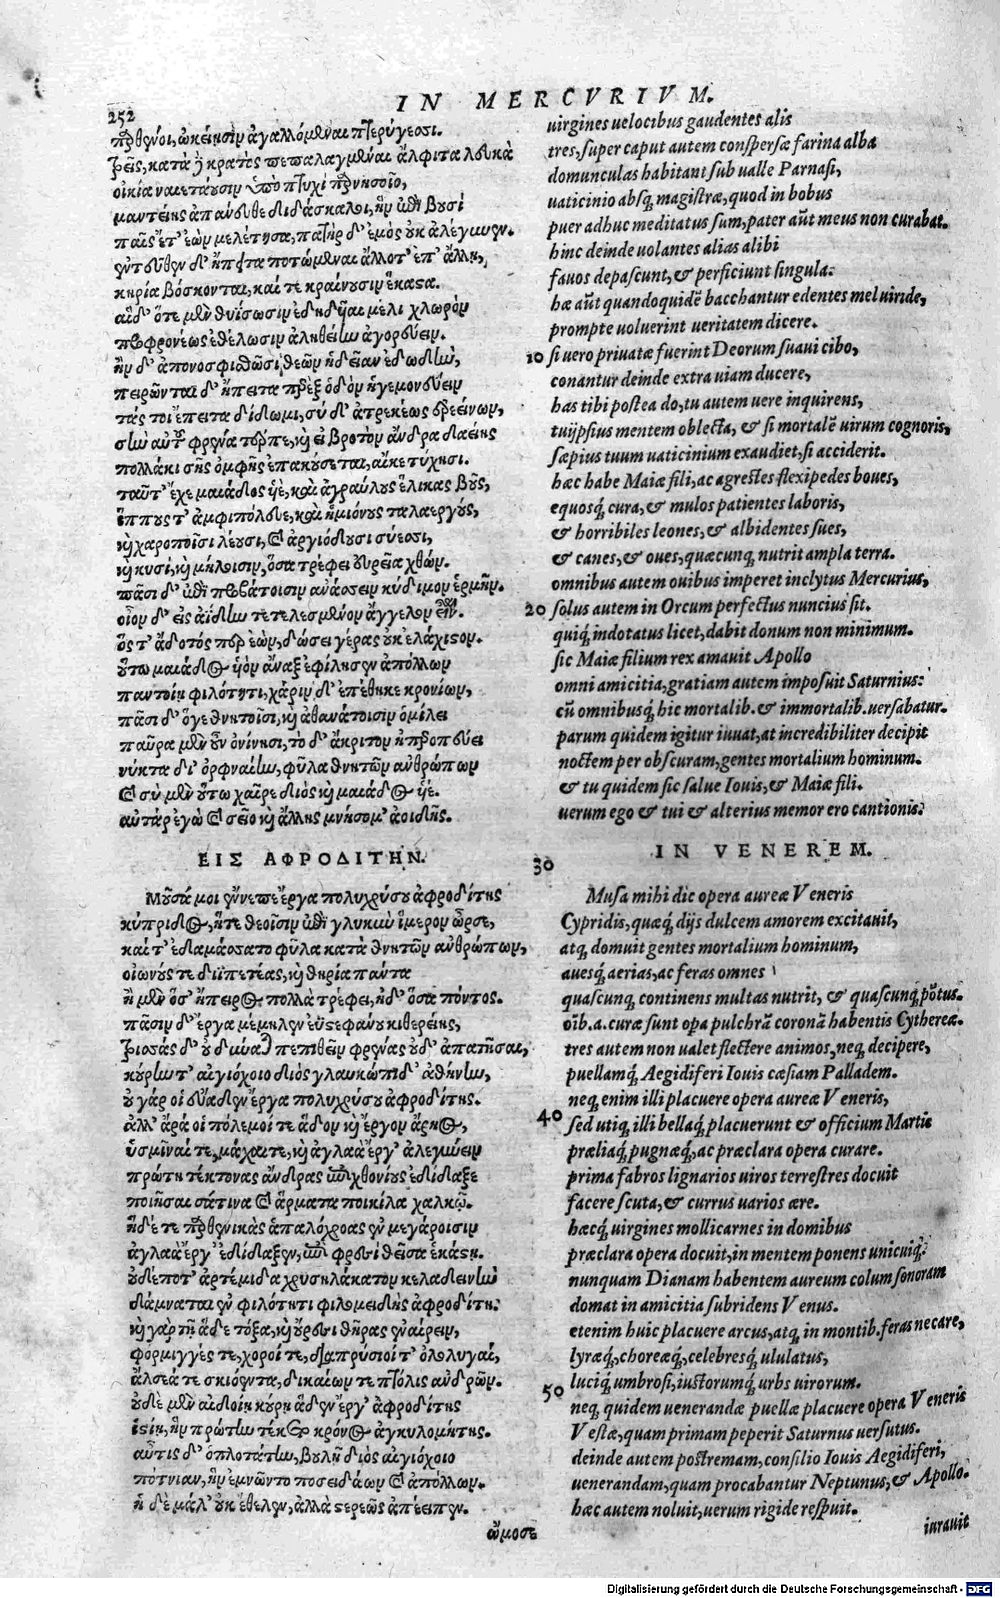 252
IN MERCVRIVM.
παρθένοι, ὠκείῃσιν ἀγαλλόμεναι πτερύγεσσι.
τρεῖς, κατὰ ἢ κρατὸς πεπαλαγμέναι ἄλφιτα λευκὰ
οἰκία ναιετάουσιν ὑπὸ πτυχὶ παρνησοῖο,
μαντείης ἀπάνευθε διδάσκαλοι, ἣν ἐπὶ βουσὶ
παῖς ἔτ' ἐὼν μελέτησα, πατὴρ δ' ἐμὸς οὐκ ἀλέγυνεν.
ἐντεῦθεν δ' ἤπειτα ποτώμεναι ἄλλοτ' ἐπ' ἄλλῃ,
κηρία βόσκονται, καί τε κραίνουσιν ἕκαστα.
αἱ δ' ὅτε μὲν θυίσωσιν ἐδηδῆαι μέλι χλωρὸν
προφρονέως ἐθέλωσιν ἀληθείην ἀγορεύειν.
ἢν δ' ἀπονοσφισθῶσι θεῶν ἡδεῖαν ἐδωδὴν,
πειρῶνται δ' ἤπειτα παρὲξ ὁδὸν ἡγεμονεύειν
τάς τοι ἔπειτα δίδωμι, σὺ δ' ἀτρεκέως ἐρεείνων,
σὴν αὐτοῦ φρένα τέρπε, καὶ εἰ βροτὸν ἄνδρα δαείης
πολλάκι σῆς ὀμφῆς ἐπακούσεται, αἴκε τύχησι.
ταῦτ' ἔχε μαιάδος υἱέ, καὶ ἀγραύλους ἕλικας βοῦς,
ἵππους τ' ἀμφιπόλευε, καὶ ἡμιόνους ταλαεργούς,
καὶ χαροποῖσι λέουσι, καὶ ἀργιόδουσι σύεσσι,
καὶ κυσὶ, καὶ μήλοισιν, ὅσα τρέφει εὐρεῖα χθών.
πᾶσι δ' ἐπὶ προβάτοισιν ἀνάσσειν κύδιμον ἑρμῆν.
οἶον δ' εἰς ἀΐδην τετελεσμένον ἄγγελον εἶναι.
ὅς τ' ἄδοτός περ ἐὼν, δώσει γέρας οὐκ ἐλάχιστον.
οὕτω μαιάδος υἱὸν ἄναξ ἐφίλησεν ἀπόλλων
παντοίῃ φιλότητι, χάριν δ' ἐπέθηκε κρονίων,
πᾶσι δ' ὅγε θνητοῖσι, καὶ ἀθανάτοισιν ὁμιλεῖ
παῦρα μὲν οὖν ὀνίνησι, τὸ δ' ἄκριτον ἠπεροπεύει
νύκτα δι' ὀρφναίην, φῦλα θνητῶν ἀνθρώπων
καὶ σὺ μὲν οὕτω χαῖρε διὸς καὶ μαιάδος υἱέ.
αὐτὰρ ἐγὼ καὶ σεῖο καὶ ἄλλης μνήσομ' ἀοιδῆς.
ΕΙΣ ΑΦΡΟΔΙΤΗΝ.
Μοῦσά μοι ἔννεπε ἔργα πολυχρύσου ἀφροδίτης
κύπριδος, ἥτε θεοῖσιν ἐπὶ γλυκὺν ἵμερον ὦρσε,
καί τ' ἐδαμάσσατο φῦλα κατὰ θνητῶν ἀνθρώπων,
οἰωνούς τε διϊπετέας, καὶ θηρία πάντα
ἢ μὲν ὅσ' ἤπειρος πολλὰ τρέφει, ἠδ' ὅσα πόντος.
πᾶσιν δ' ἔργα μέμηλεν ἐϋστεφάνου κιθερείης,
τρισσὰς δ' οὐ δύναται πεπιθεῖν φρένας οὐδ' ἀπατῆσαι,
κούρην τ' αἰγιόχοιο διὸς γλαυκώπιδ' ἀθήνην,
οὐ γάρ οἱ εὔαδεν ἔργα πολυχρύσου ἀφροδίτης.
ἀλλ' ἄρα οἱ πόλεμοί τε ἅδον καὶ ἔργον ἄρηος,
ὑσμῖναί τε, μάχαι τε, καὶ ἀγλαὰ ἔργ' ἀλεγύνειν
πρώτη τέκτονας ἄνδρας ἐπιχθονίους ἐδίδαξε
ποιῆσαι σάτινα καὶ ἅρματα ποικίλα χαλκῷ.
ἡ δέ τε παρθενικὰς ἁπαλόχροας ἐν μεγάροισιν
ἀγλαὰ ἔργ' ἐδίδαξεν, ἐπὶ φρεσὶ θεῖσα ἑκάστῃ.
οὐδέποτ' ἀρτέμιδα χρυσηλάκατον κελαδεινὴν
δάμναται ἐν φιλότητι φιλομειδὴς ἀφροδίτη.
καὶ γὰρ τῇ ἅδε τόξα, καὶ οὔρεσι θῆρας ἐναίρειν,
φόρμιγγές τε, χοροί τε, διαπρύσιοί τ' ὀλολυγαί,
ἄλσεά τε σκιόεντα, δικαίων τε πτόλις ἀνδρῶν.
οὐδὲ μὲν αἰδοίῃ κούρῃ ἅδεν ἔργ' ἀφροδίτης
ἱστίῃ, ἣν πρώτην τέκετο κρόνος ἀγκυλομήτης.
αὖτις δ' ὁπλοτάτην, βουλῇ διὸς αἰγιόχοιο
πότνιαν, ἣν ἐμνῶντο ποσειδάων καὶ ἀπόλλων.
ἡ δὲ μάλ' οὐκ ἔθελεν, ἀλλὰ στερεῶς ἀπέειπεν.
ὤμοσε
uirgines uelocibus gaudentes alis
tres, super caput autem conspersæ farina alba
domunculas habitant sub ualle Parnasi,
uaticinio absq; magistræ, quod in bobus
puer adhuc meditatus sum, pater aūt meus non curabat.
hinc deinde uolantes alias alibi
fauos depascunt, & perficiunt singula:
hæ aūt quandoquidē bacchantur edentes mel uiride,
prompte uoluerint ueritatem dicere.
10 si uero priuatæ fuerint Deorum suaui cibo,
conantur deinde extra uiam ducere,
has tibi postea do, tu autem uere inquirens,
tuijpsius mentem oblecta, & si mortalē uirum cognoris,
sæpius tuum uaticinium exaudiet, si acciderit.
hæc habe Maiæ fili, ac agrestes flexipedes boues,
equosq; cura, & mulos patientes laboris,
& horribiles leones, & albidentes sues,
& canes, & oues, quæcunq; nutrit ampla terra.
omnibus autem ouibus imperet inclytus Mercurius,
20 solus autem in Orcum perfectus nuncius sit.
quiq; indotatus licet, dabit donum non minimum.
sic Maiæ filium rex amauit Apollo
omni amicitia, gratiam autem imposuit Saturnius:
cū omnibusq; hic mortalib. & immortalib. uersabatur.
parum quidem igitur iuuat, at incredibiliter decipit
noctem per obscuram, gentes mortalium hominum.
& tu quidem sic salue Iouis, & Maiæ fili.
uerum ego & tui & alterius memor ero cantionis.
30
IN VENEREM.
Musa mihi dic opera aureæ Veneris
Cypridis, quæq; dijs dulcem amorem excitauit,
atq; domuit gentes mortalium hominum,
auesq; aerias, ac feras omnes
quascunq; continens multas nutrit, & quascunq; pōtus.
oīb. a. curæ sunt opa pulchrā coronā habentis Cythereæ.
tres autem non ualet flectere animos, neq; decipere,
puellamq; Aegidiferi Iouis cæsiam Palladem.
neq; enim illi placuere opera aureæ Veneris,
40 sed utiq; illi bellaq; placuerunt & officium Martis
præliaq; pugnæq;, ac præclara opera curare.
prima fabros lignarios uiros terrestres docuit
facere scuta, & currus uarios ære.
hæcq; uirgines mollicarnes in domibus
præclara opera docuit, in mentem ponens unicuiq;.
nunquam Dianam habentem aureum colum sonoram
domat in amicitia subridens Venus.
etenim huic placuere arcus, atq; in montib. feras necare,
lyræq;, choreæq;, celebresq; ululatus,
luciq; umbrosi, iustorumq; urbs uirorum.
50 neq; quidem uenerandæ puellæ placuere opera Veneris
Vestæ, quam primam peperit Saturnus uersutus.
deinde autem postremam, consilio Iouis Aegidiferi,
uenerandam, quam procabantur Neptunus, & Apollo.
hæc autem noluit, uerum rigide respuit.
iurauit
Digitalisierung gefördert durch die Deutsche Forschungsgemeinschaft - DFG